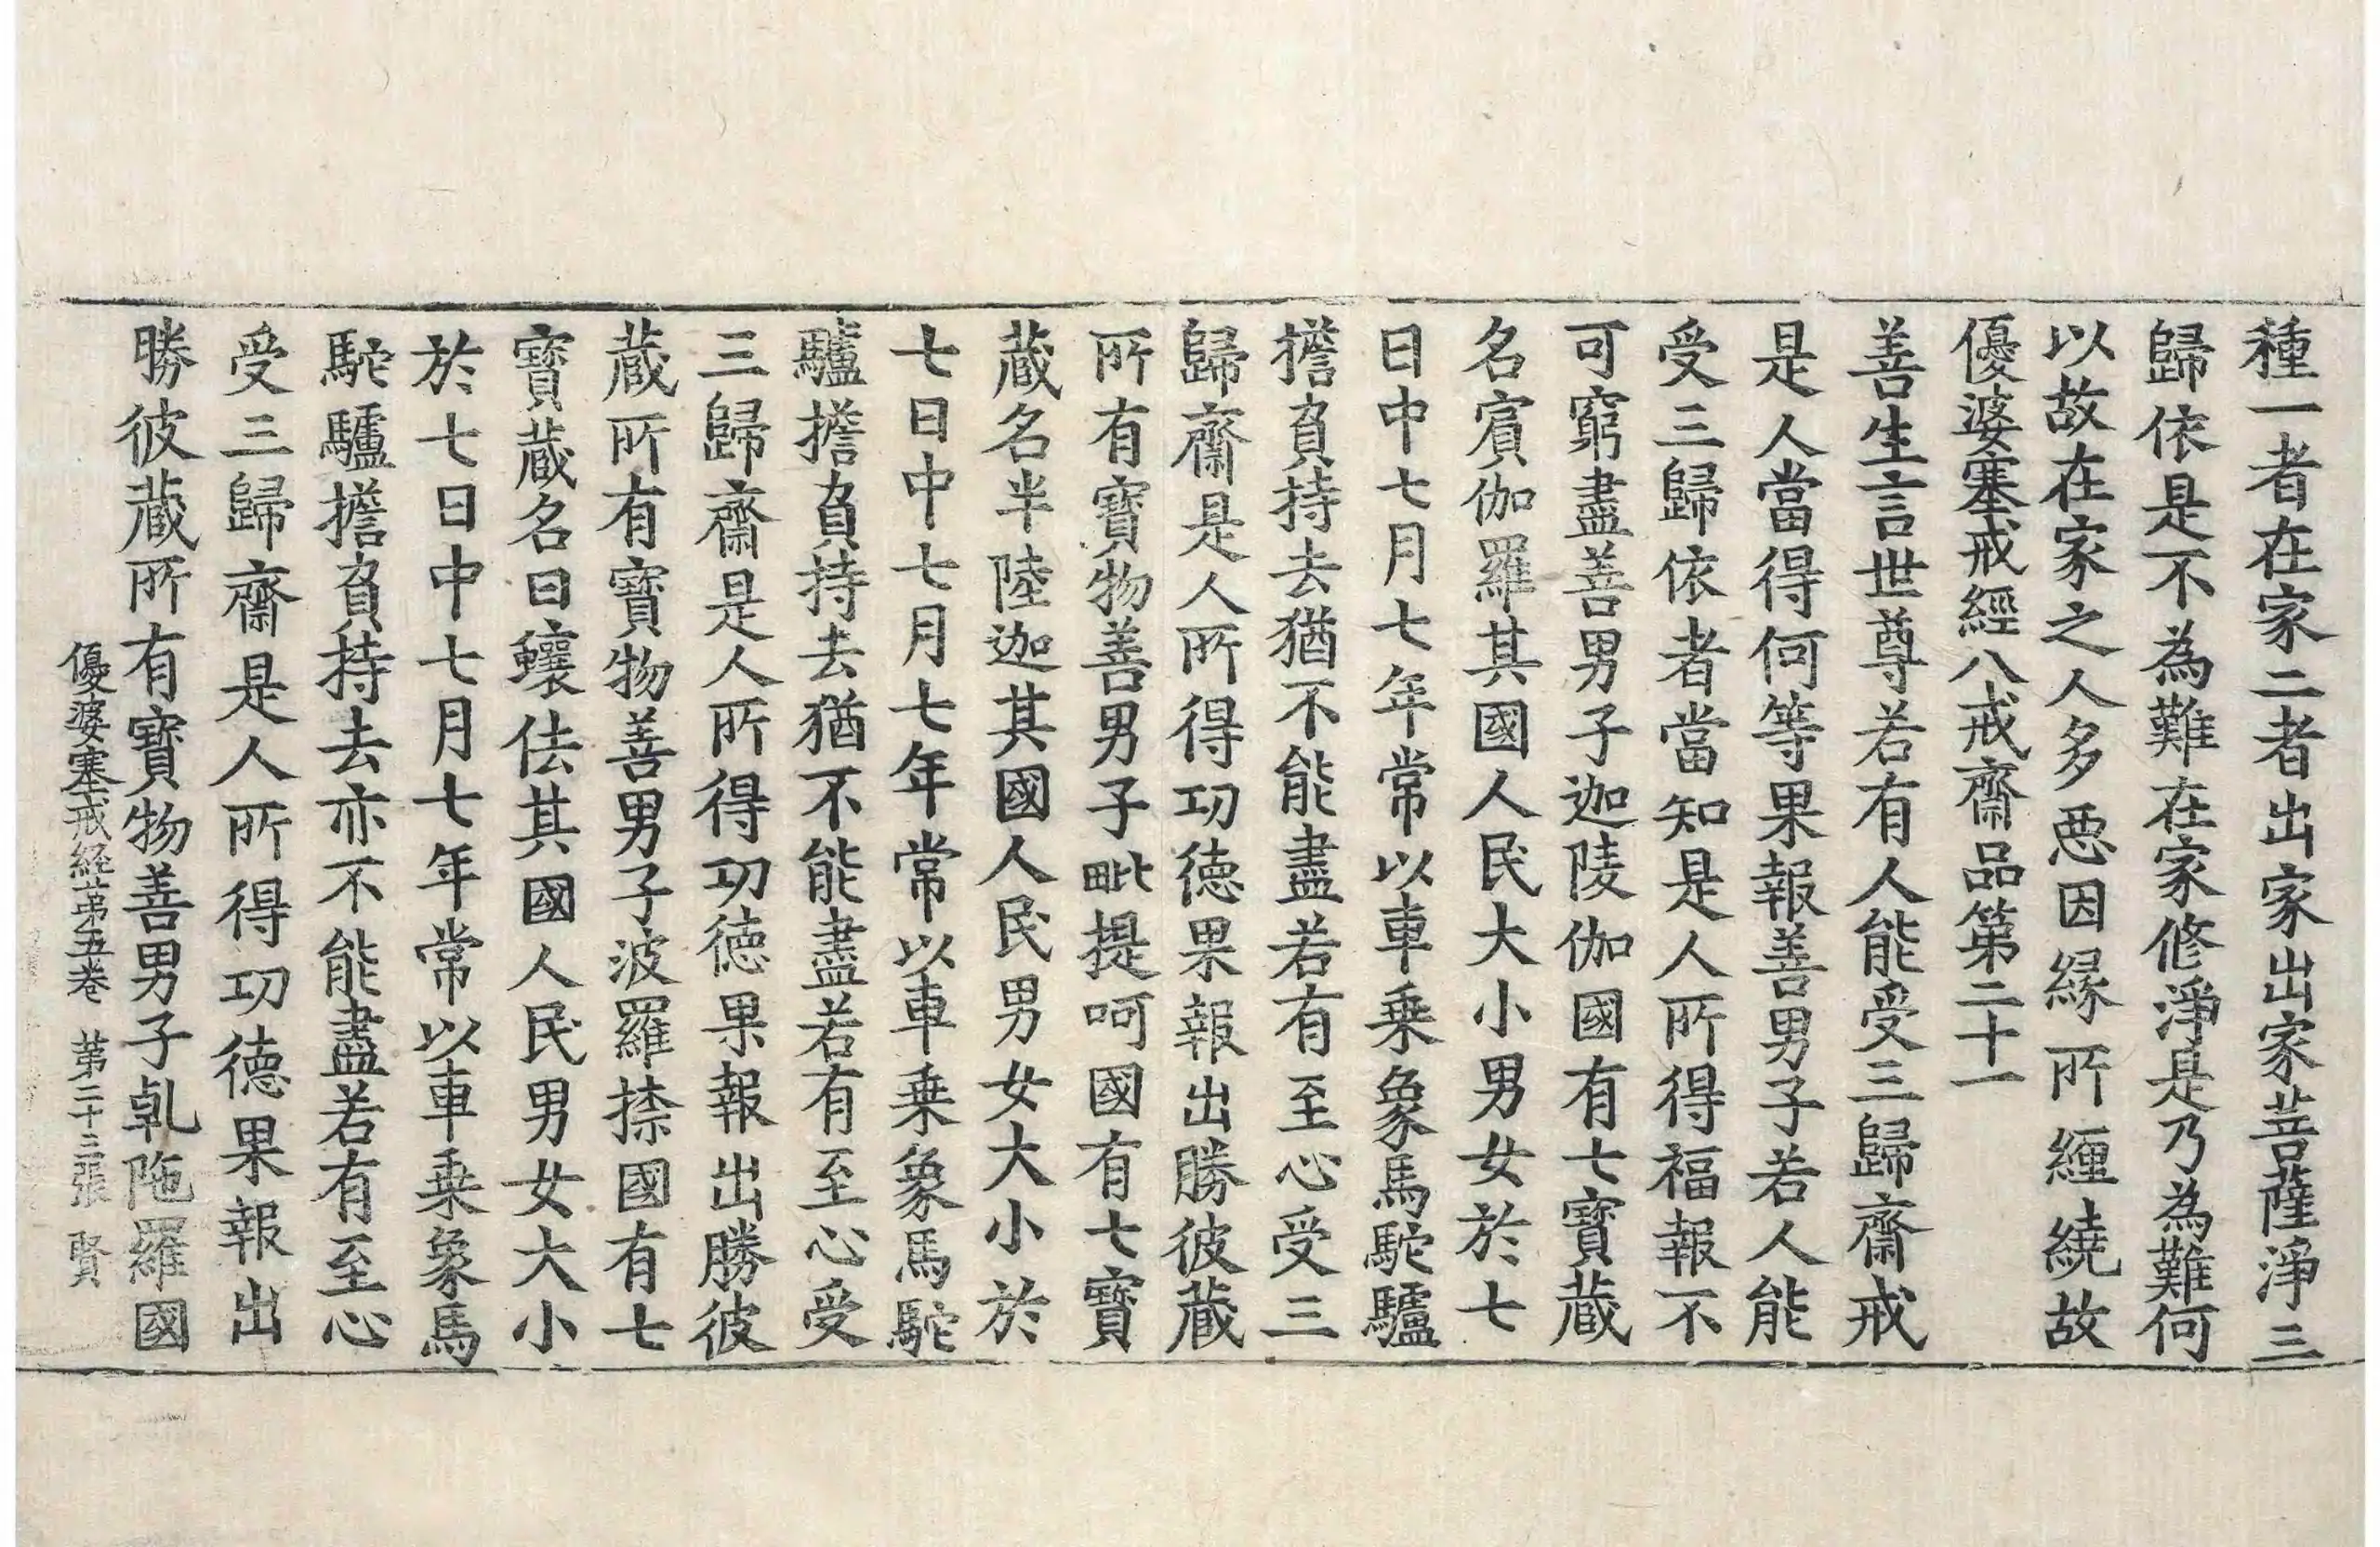 種一者在家二者出家出家菩薩淨三
歸依是不為難在家修淨是乃為難何
以故在家之人多惡因緣所纏繞故
優婆塞戒經八戒齋品第二十一
善生言世尊若有人能受三歸齋戒
是人當得何等果報善男子若人能
受三歸依者當知是人所得福報不
可窮盡善男子迦陵伽國有七寶藏
名賓伽羅其國人民大小男女於七
日中七月七年常以車乗象馬駝驢
擔負持去猶不能盡若有至心受三
歸齋是人所得功德果報出勝彼藏
所有寶物善男子毗提呵國有七寶
藏名半陸迦其國人民男女大小於
七日中七月七年常以車乗象馬駝
驢擔負持去猶不能盡若有至心受
三歸齋是人所得功德果報出勝彼
藏所有寶物善男子波羅㮈國有七
寶藏名曰蠰佉其國人民男女大小
於七日中七月七年常以車乗象馬
駝驢擔負持去亦不能盡若有至心
受三歸齋是人所得功德果報出
勝彼藏所有寶物善男子乹陁羅國
優婆塞戒経第五卷 第二十三張 賢